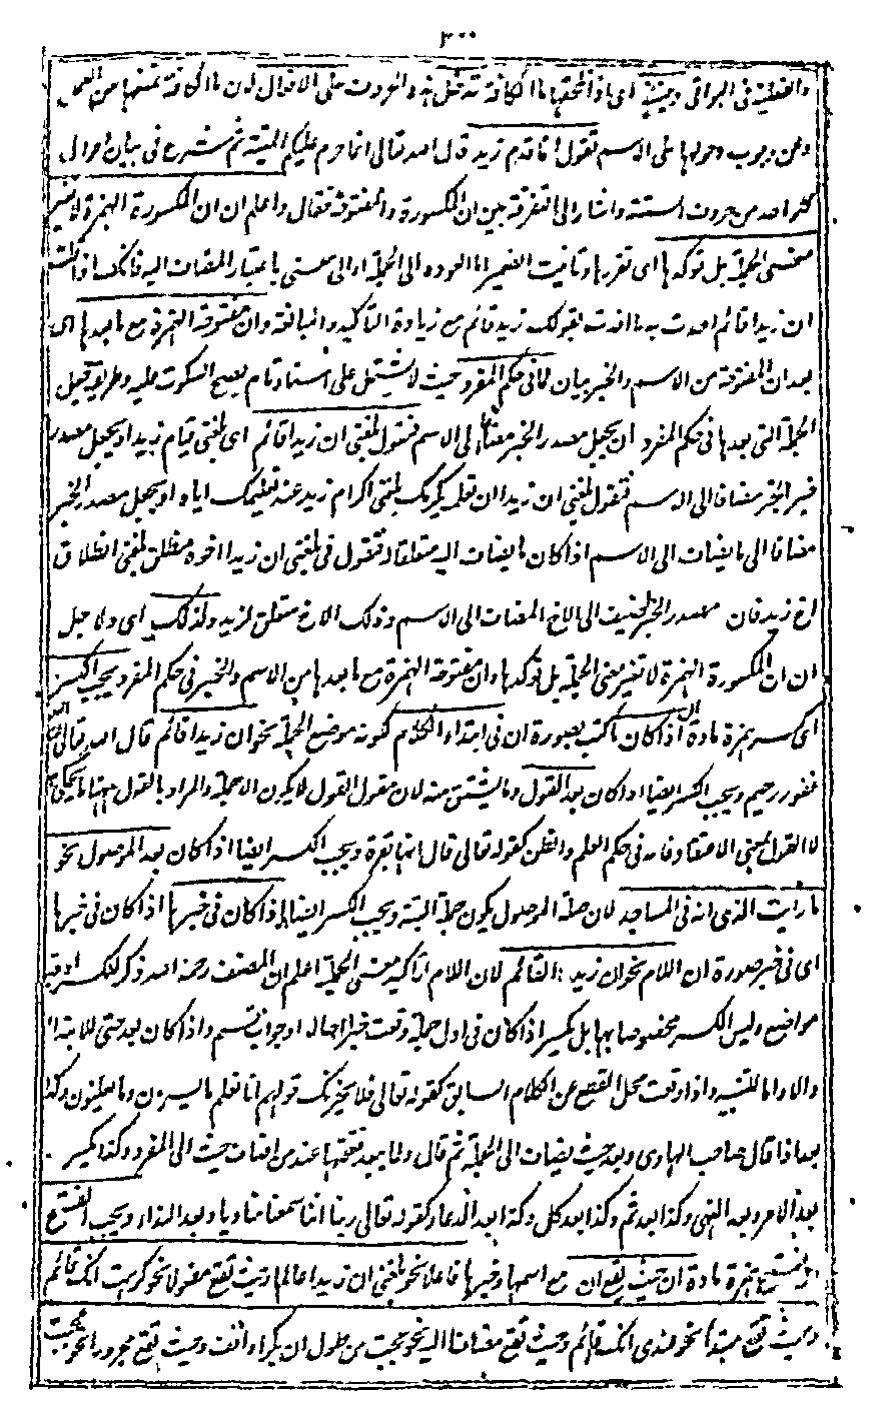 ٣٠٠
والفعلية فى البواقى وحينئذ اى اذا لحقها ما الكافة تدخل هذه الحروف على الافعال لان ما الكافة تمنعها عن العمل
وعن وجوب دخولها على الاسم تقول انما قدم زيد قال الله تعالى انما حرم عليكم الميتة ثم شرع فى بيان احوال
كل واحد من حروف الستة واشار الى التفرقة بين ان المكسورة والمفتوحة فقال واعلم ان ان المكسورة الهمزة لا تغير
معنى الجملة بل تؤكدها اى تقررها وتانيث الضمير اما لعوده الى الجملة او الى معنى باعتبار المضاف اليه فانك اذا قلت
ان زيدا قائم افدت به ما افدت بقولك زيد قائم مع زيادة التاكيد والمبالغة وان مفتوحة الهمزة مع ما بعدها اى
بعد ان المفتوحة من الاسم والخبر بيان لما فى حكم المفرد حيث لا يشتمل على اسناد تام يصح السكوت عليه وطريق جعل
الجملة التى بعدها فى حكم المفرد ان يجعل مصدر الخبر مضافا الى الاسم فتقول بلغنى ان زيدا قائم اى بلغنى قيام زيد او يجعل مصدر
خبر الخبر مضافا الى الاسم فتقول بلغنى ان زيدا ان تعلمه يكرمك بلغنى اكرام زيد عند تعليمك اياه او يجعل مصدر الخبر
مضافا الى ما يضاف الى الاسم اذا كان ما يضاف اليه متعلقا له فتقول فى بلغنى ان زيدا اخوه منطلق بلغنى انطلاق
اخ زيد فان مصدر الخبر اضيف الى الاخ المضاف الى الاسم وذلك الاخ متعلق لزيد ولذلك اى ولاجل
ان ان المكسورة الهمزة لا تغير معنى الجملة بل تؤكدها وان مفتوحة الهمزة مع ما بعدها من الاسم والخبر فى حكم المفرد يجب الكسر
اى كسر همزة مادة ان اذا كان كتب بصورة ان فى ابتداء الكلام كونه موضع الجملة نحو ان زيدا قائم قال الله تعالى ان الله
غفور رحيم ويجب الكسر ايضا اذا كان بعد القول وما يشتق منه لان مقول القول لا يكون الا جملة والمراد بالقول ههنا ما يحكى
لا القول بمعنى الاعتقاد فانه فى حكم العلم والظن كقوله تعالى قال انها بقرة ويجب الكسر ايضا اذا كان بعد الموصول نحو
ما رايت الذى انه فى المساجد لان صلة الموصول يكون جملة البتة ويجب الكسر ايضا اذا كان فى خبرها اذا كان فى خبرها
اى فى خبر صورة ان اللام نحو ان زيدا لقائم لان اللام لتاكيد معنى الجملة اعلم ان المصنف رحمه الله ذكر للكسر اربعة
مواضع وليس الكسر مخصوصا بها بل يكسر اذا كان فى اول جملة وقعت خبرا او حالا او جواب قسم واذا كان بعد حتى للابتداء
والا واما للتنبيه واذا وقعت محل القطع عن الكلام السابق كقوله تعالى فلا يحزنك قولهم انا نعلم ما يسرون وما يعلنون وكذا
بعد اذا قال صاحب الهادى وبعد حيث يضاف الى الجملة ثم قال ولما بعد تفتحها عند من اضاف حيث الى المفرد وكذا يكسر
بعد الامر وبعد النهى وكذا بعد ثم وكذا بعد كل وكذا بعد الدعاء كقوله تعالى ربنا اننا سمعنا مناديا وبعد النداء ويجب الفتح
اى فتح همزة مادة ان حيث يقع ان مع اسمها وخبرها فاعلا نحو بلغنى ان زيدا عالم وحيث تقع مفعولا نحو كرهت انك قائم
وحيث تقع مبتدأ نحو عندى انك قائم وحيث تقع مضافا اليه نحو عجبت من طول ان بكرا واقف وحيث تقع مجرورا نحو عجبت